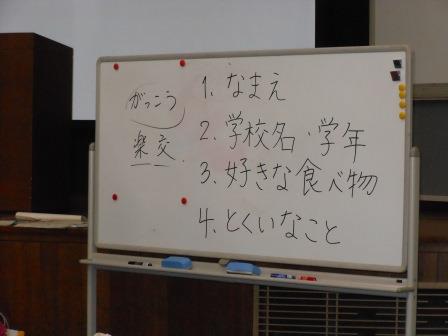 がっこう
楽交
1. なまえ
2. 学校名・学年
3. 好きな食べ物
4. とくいなこと